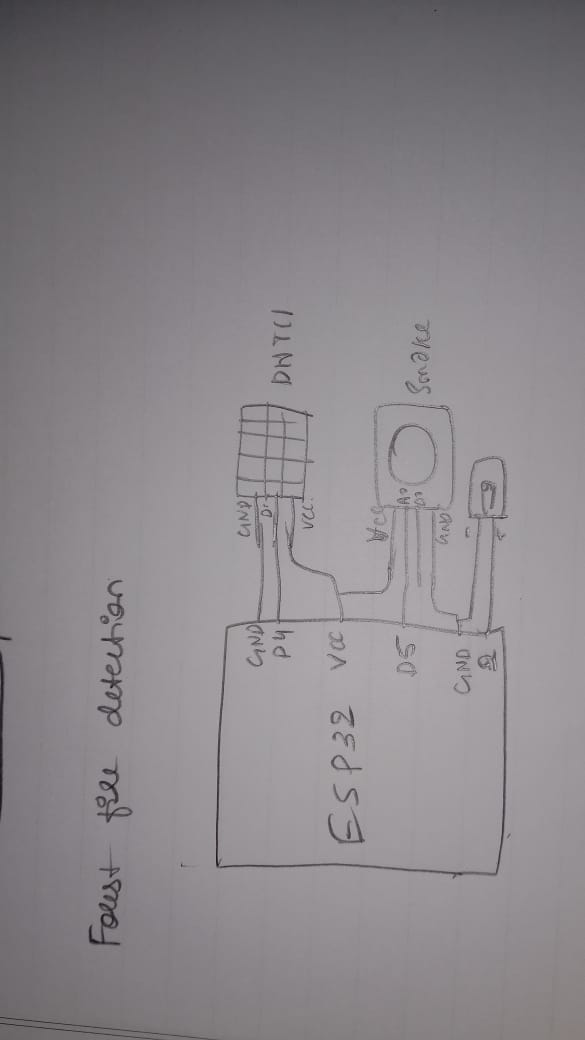 Forest fire detection
ESP32
GND
P4
VCC
D5
GND
GND
D
VCC
DHT11
VCC
A0
D0
GND
Smoke